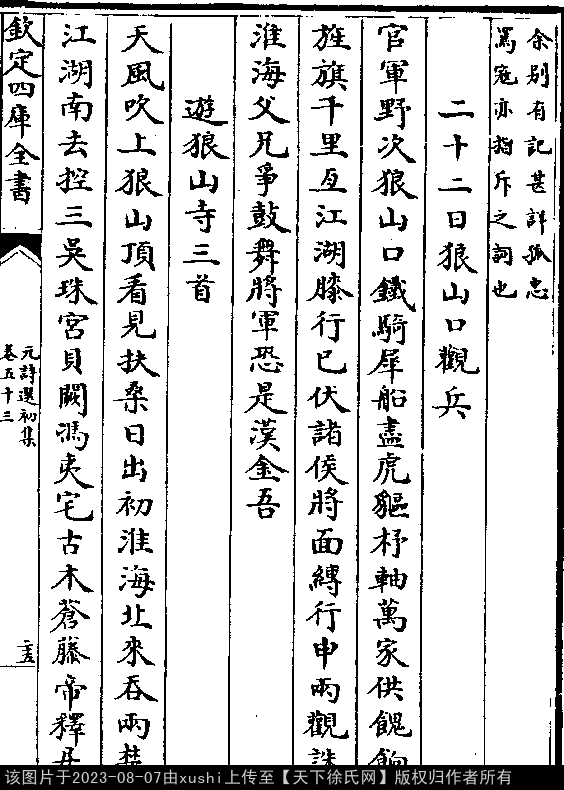 余别有記甚詳孤忠
罵寇亦指斥之詞也
二十二日狼山口觀兵
官軍野次狼山口鐵騎犀船盡虎貙杼軸萬家供餽餉
旌旗千里亙江湖膝行已伏諸侯將面縛行申兩觀誅
淮海父兄爭鼓舞將軍恐是漢金吾
遊狼山寺三首
天風吹上狼山頂看見扶桑日出初淮海北來吞兩楚
江湖南去控三吳珠宮貝闕馮夷宅古木蒼藤帝釋
欽定四庫全書
元詩選初集
卷五十三
该图片于2023-08-07由xushi上传至【天下徐氏网】版权归作者所有